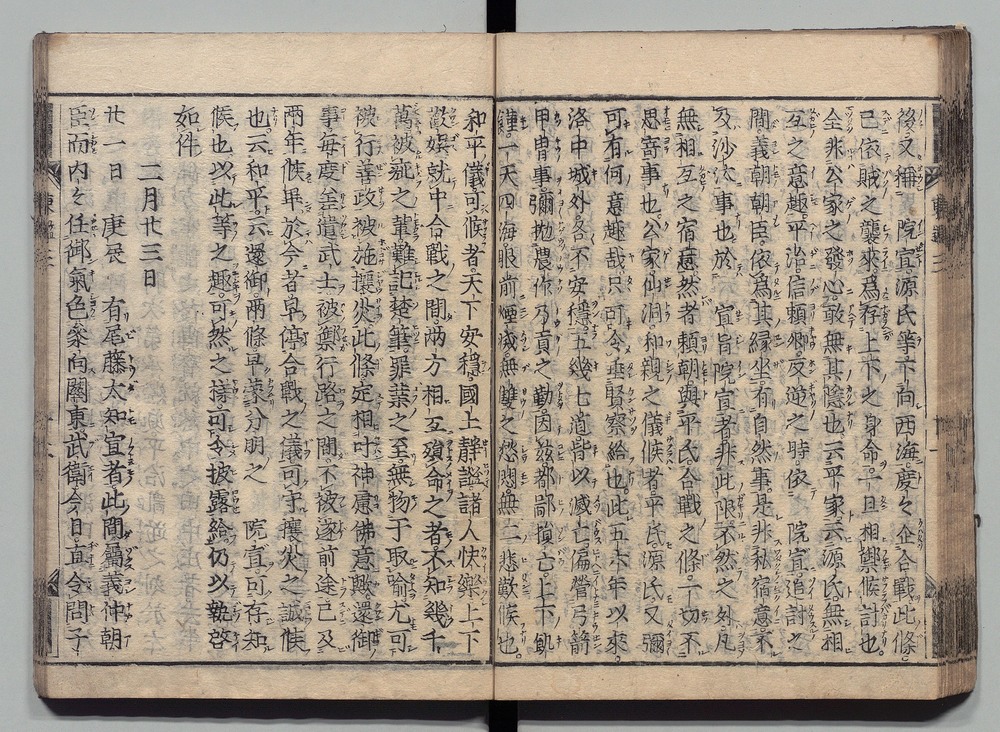 後又稱 院宣源氏等下向西海度々企合戰此條
已依賊之襲來爲存上下之身命一旦相與候討也
全非公家之發心敢無其隱也云平家云源氏無相
互之意趣平治信頼卿反逆之時依 院宣追討之
間義朝朝臣依爲其縁坐有自然事是非私宿意不
及沙汰事也於 宣旨院宣者非此限不然之外凡
無相互之宿意然者頼朝與平氏合戰之條一切不
思寄事也公家仙洞和親之儀候者平氏源氏又彌
可有何意趣哉只可令垂賢察給也此五六年以來
洛中城外各不安穩五幾七道皆以滅亡偏營弓箭
甲冑事彌抛農作乃貢之勤因茲都鄙損亡上下飢
饉一天四海眼前煙滅無雙之愁悶無二悲歎候也
和平儀可候者天下安穩國土靜謐諸人快樂上下
歡娯就中合戰之間兩方相互殞命之者不知幾千
萬被疵之輩難記楚筆罪業之至無物于取喩尤可
被行善政被施攘災此條定相叶神慮佛意歟還御
事毎度差遣武士被禦行路之間不被遂前途已及
兩年候畢於今者早停合戰之儀可守攘災之誠候
也云和平云還御兩條早蒙分明之 院宣可存知
候也以此等之趣可然之樣可令披露給仍以執啓
如件
二月廿三日
廿一日 庚辰 有尾藤太知宣者此間屬義仲朝
臣而内々任御氣色參向關東武衛今日直令問子